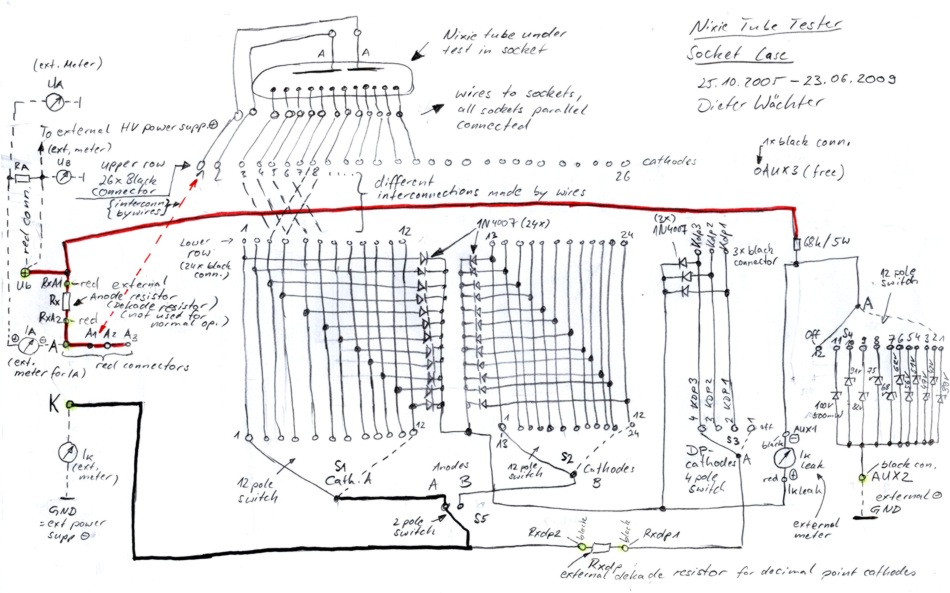 Nixie Tube Tester
Socket Case
25.10.2005 – 23.06.2009
Dieter Wächter
Nixie tube under
test in socket
A
A
wires to sockets,
all sockets parallel
connected
(ext. Meter)
UA
To external HV power supp. ⊕
(ext. meter)
UB
RA
red conn.
upper row
26x Black
connector
{interconn.
by wires}
1 2 3 4 5 6 7 8 ....
cathodes
26
different
interconnections made by wires
1x black conn.
AUX3 (free)
Lower
row
(24x black
conn.)
1
12
1N4007 (24x)
13
24
(3x)
1N4007
KDP3
KDP2
KDP1
3x black
connector
68k/5W
12 pole
switch
A
Ub
RxA1
red external
Rx
Anode resistor
(Dekade resistor)
(not used for
normal op.)
RxA2
red
IA
A
A1 A2 A3
red connectors
(ext.
meter for IA)
Off
12
S4
11 9 8 7 6 5 4 3 2 1
100V
500mW
75
68
62V
56V
K
IK
(ext.
meter)
GND
= ext power
supp ⊖
1
12
12 pole
switch
S1
Cath. A
Anodes
A B
2 pole
switch
S5
13
1
12
24
12 pole
switch
S2
Cathodes
B
4 KDP3
3 KDP2
2 KDP1
1 off
S3
A
DP-
cathodes
4 pole
switch
AUX1
black ⊖
IK
leak
red ⊕
IK leak
external
meter
black con.
AUX2
external ⊖
GND
Rxdp2
black
black
Rxdp1
Rxdp
external dekade resistor for decimal point cathodes